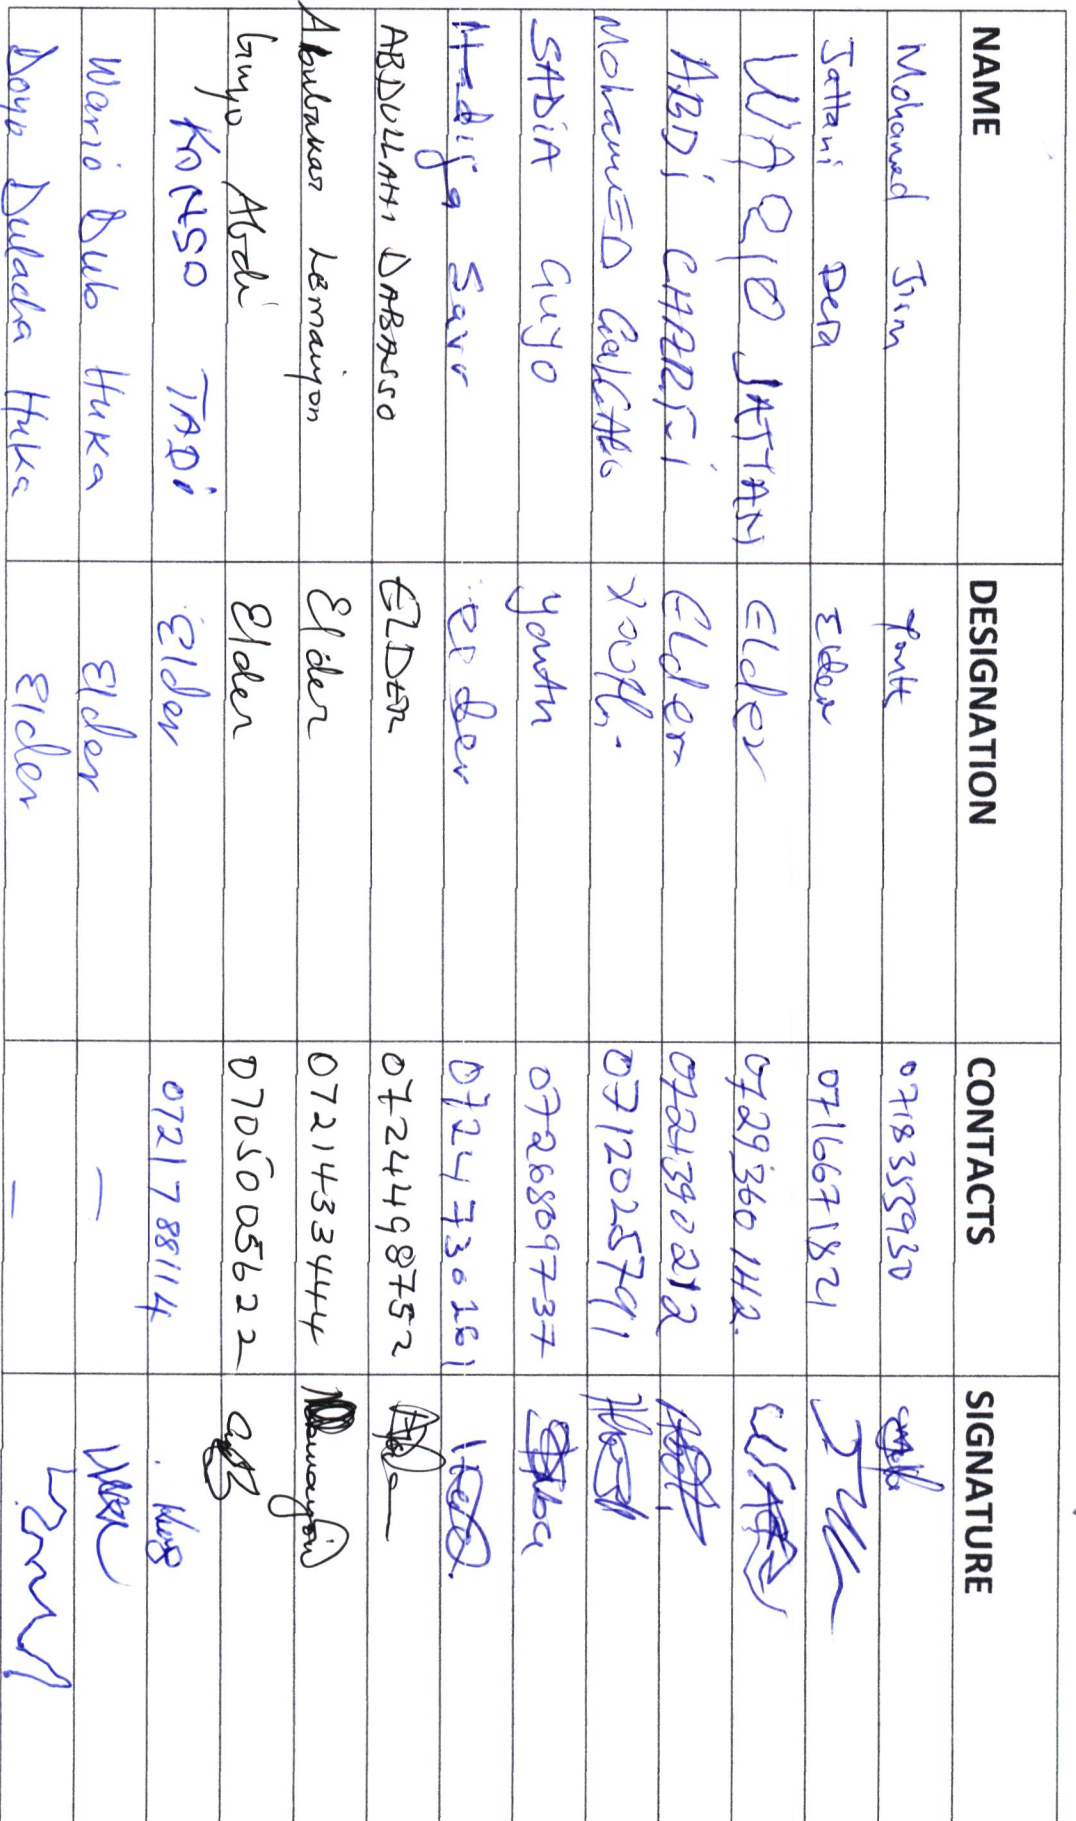 NAME DESIGNATION CONTACTS SIGNATURE
Mohamed Jirm Youth 0718353930
Jattani Dera Elder 0716671821
WARIO JATTANI Elder 0729360142.
ABDi CHARFI Elder 0721390212
MohamED GalGAlo Youth. 0712025791
SADiA Guyo youth 0726809737
Hadija Savo elder 0724730261
ABDULLAHI DABASSO ELDER 0724498752
Abubakar Lemaiyon Elder 0721433444
Guyo Abdi Elder 0705005622
KONSO TADi Elder 0721788114
Wario Dub Huka Elder —
Doyo Dulacha Huka Elder —